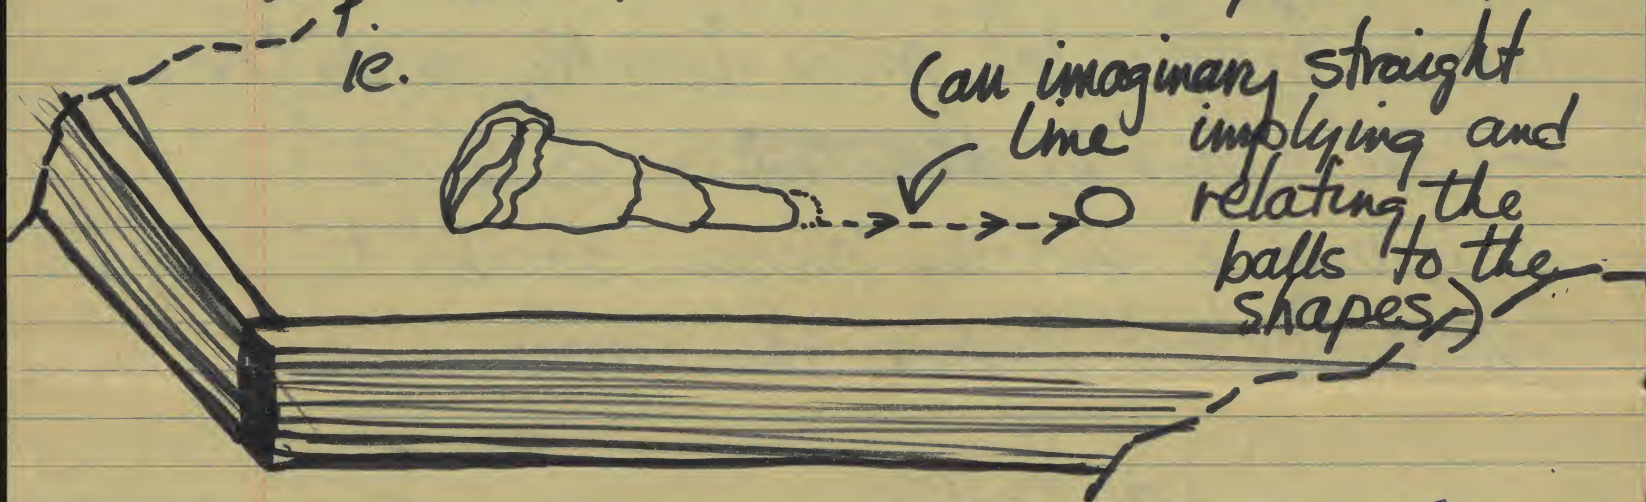 ie.
(an imaginary straight
line implying and
relating the
balls to the
shapes.)